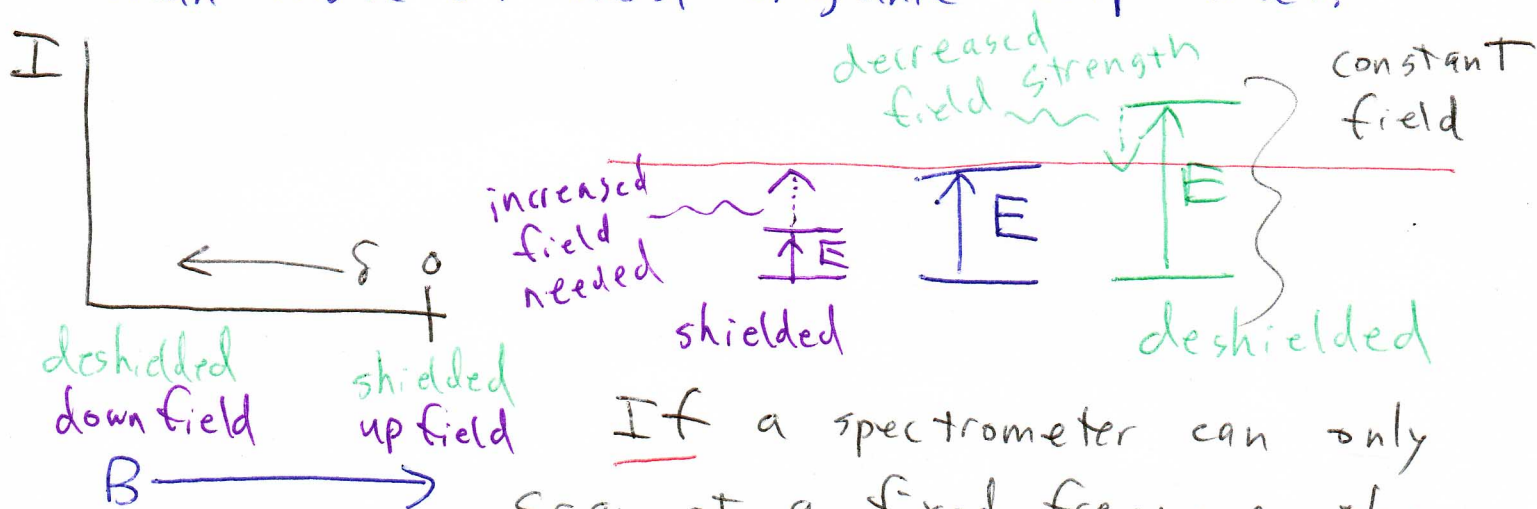 I
decreased
field strength
constant
field
increased
field
needed
E
E
E
δ 0
shielded
deshielded
deshielded
down field
shielded
up field
B
If a spectrometer can only